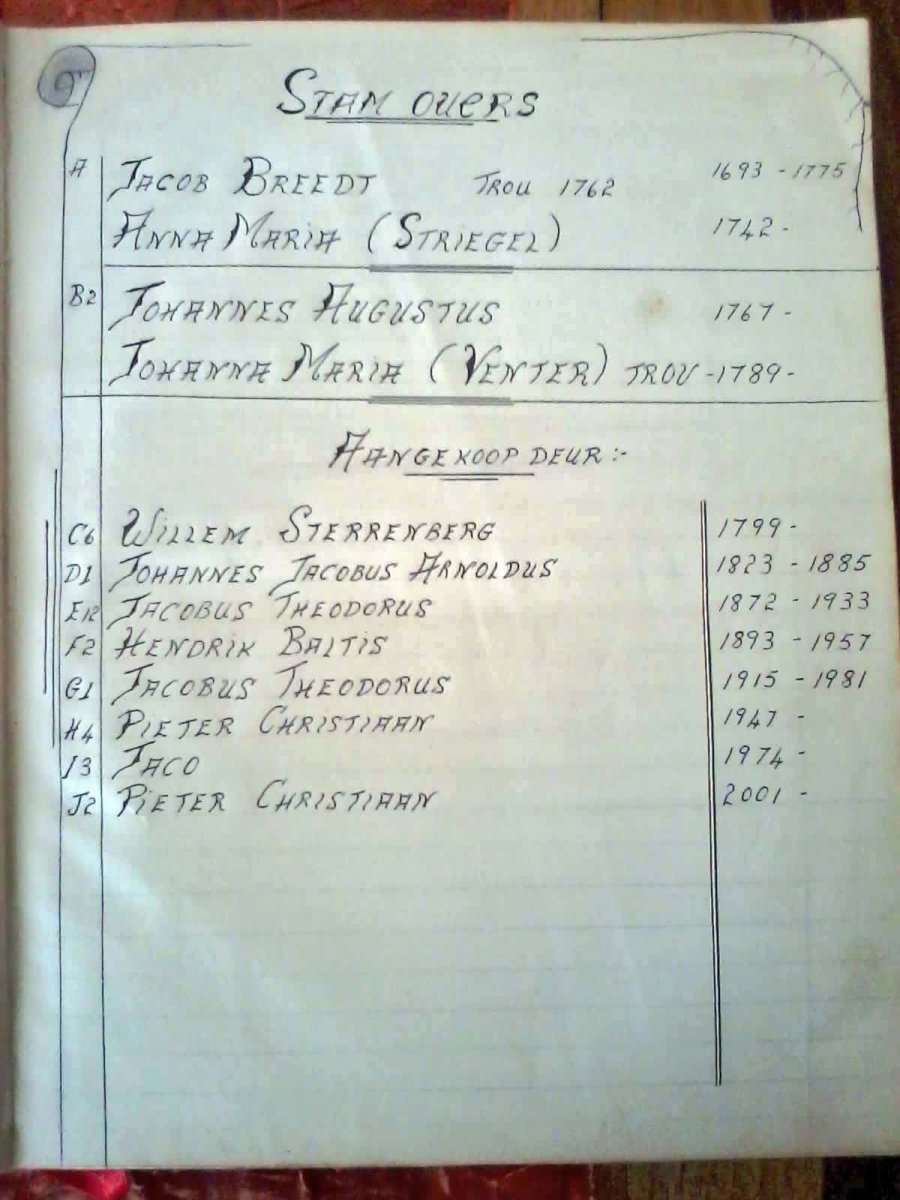 9
STAM OUERS
A JACOB BREEDT TROU 1762 1693 - 1775
ANNA MARIA (STRIEGEL) 1742 -
B2 JOHANNES AUGUSTUS 1767 -
JOHANNA MARIA (VENTER) TROU - 1789 -
AANGEKOOP DEUR :-
C6 WILLEM STERRENBERG 1799 -
D1 JOHANNES JACOBUS ARNOLDUS 1823 - 1885
E12 JACOBUS THEODORUS 1872 - 1933
F2 HENDRIK BALTIS 1893 - 1957
G1 JACOBUS THEODORUS 1915 - 1981
H4 PIETER CHRISTIAAN 1947 -
I3 JACO 1974 -
J2 PIETER CHRISTIAAN 2001 -